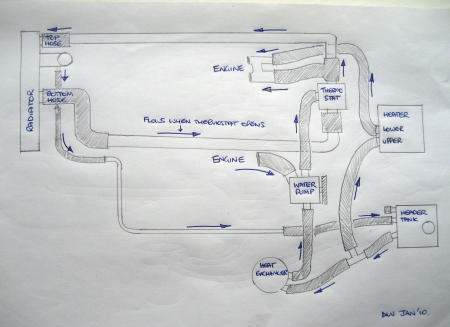 TOP
HOSE
RADIATOR
BOTTOM
HOSE
ENGINE
THERMO
STAT
HEATER
LOWER
UPPER
FLOWS WHEN THERMOSTAT OPENS
ENGINE
WATER
PUMP
HEADER
TANK
HEAT
EXCHANGER
JAN '10